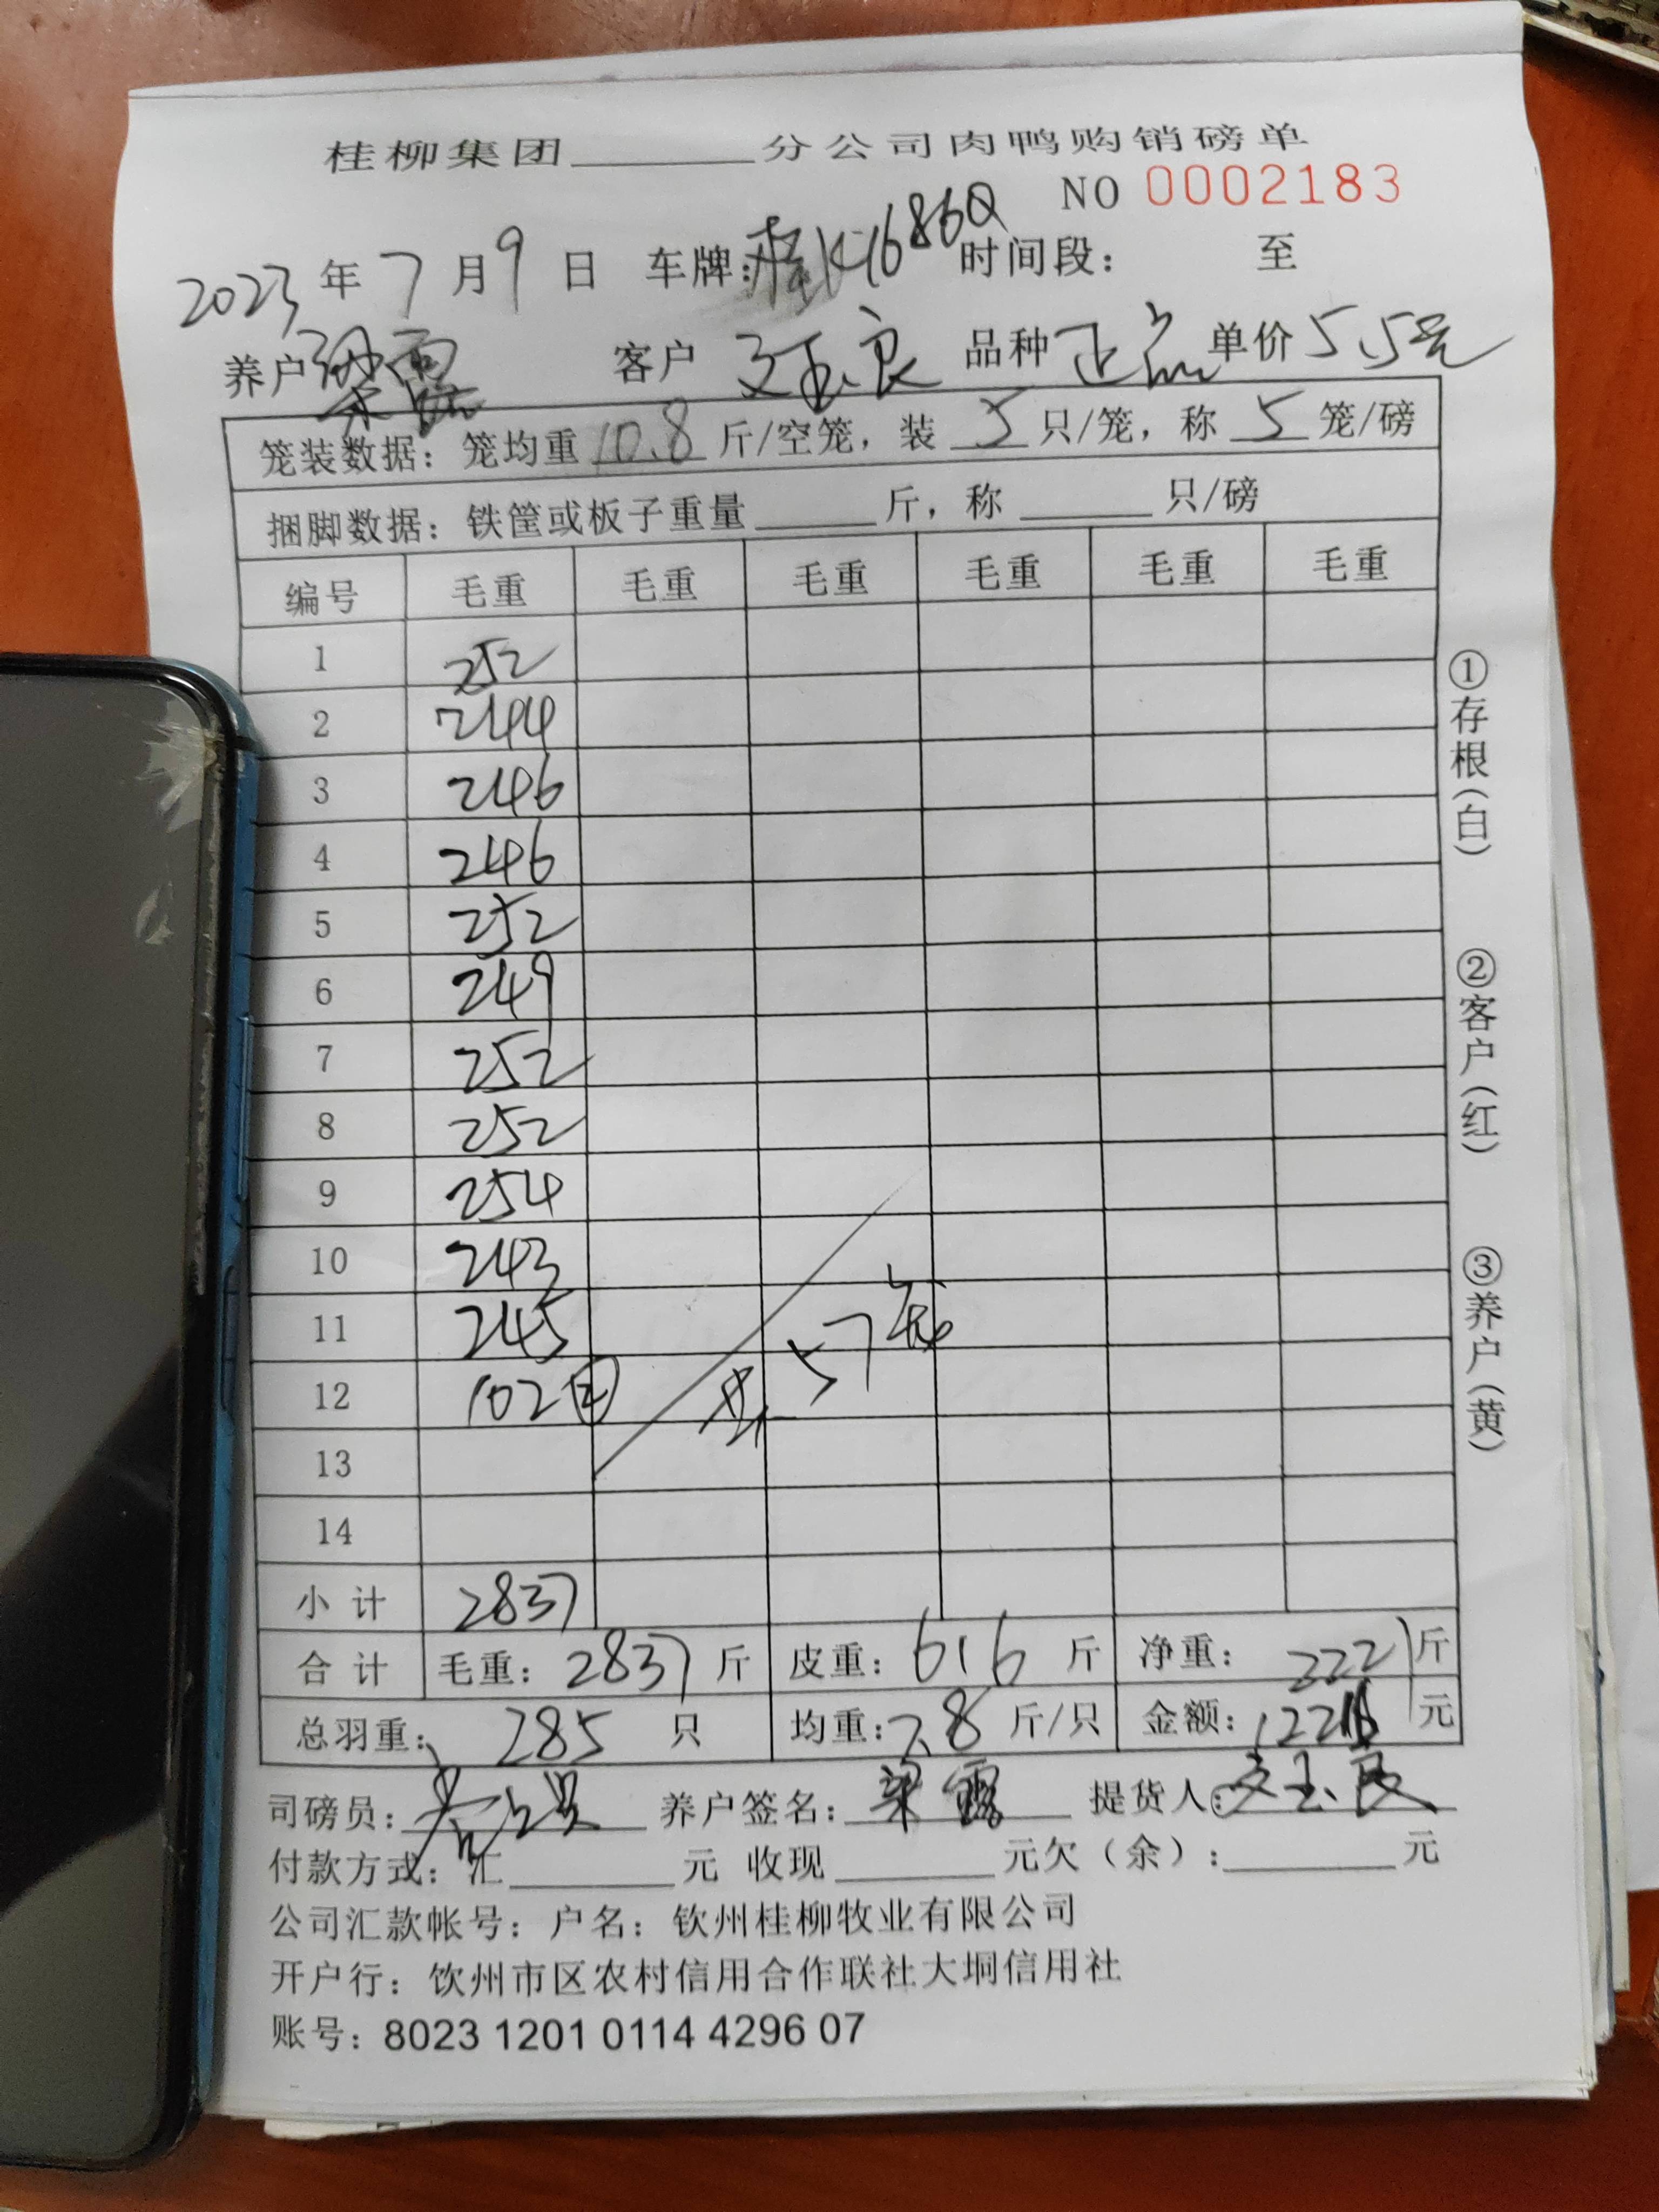 桂柳集团______分公司肉鸭购销磅单
NO 0002183
2023年7月9日 车牌:桂K1686Q 时间段: 至
养户 梁露 客户 文玉良 品种 正品 单价 5.5元
笼装数据:笼均重10.8斤/空笼,装5只/笼,称5笼/磅
捆脚数据:铁筐或板子重量______斤,称______只/磅
编号 毛重 毛重 毛重 毛重 毛重 毛重
1 252
2 244
3 246
4 246
5 252
6 249
7 252
8 252
9 254
10 243
11 245
12 102②
共57笼
13
14
小计 2837
合计 毛重:2837斤 皮重:616斤 净重:2221斤
总羽重:285只 均重:7.8斤/只 金额:元
司磅员: 养户签名:梁露 提货人:文玉良
付款方式:汇______元 收现______元欠(余):______元
公司汇款帐号:户名:钦州桂柳牧业有限公司
开户行:钦州市区农村信用合作联社大垌信用社
账号:8023 1201 0114 4296 07
①存根(白)
②客户(红)
③养户(黄)